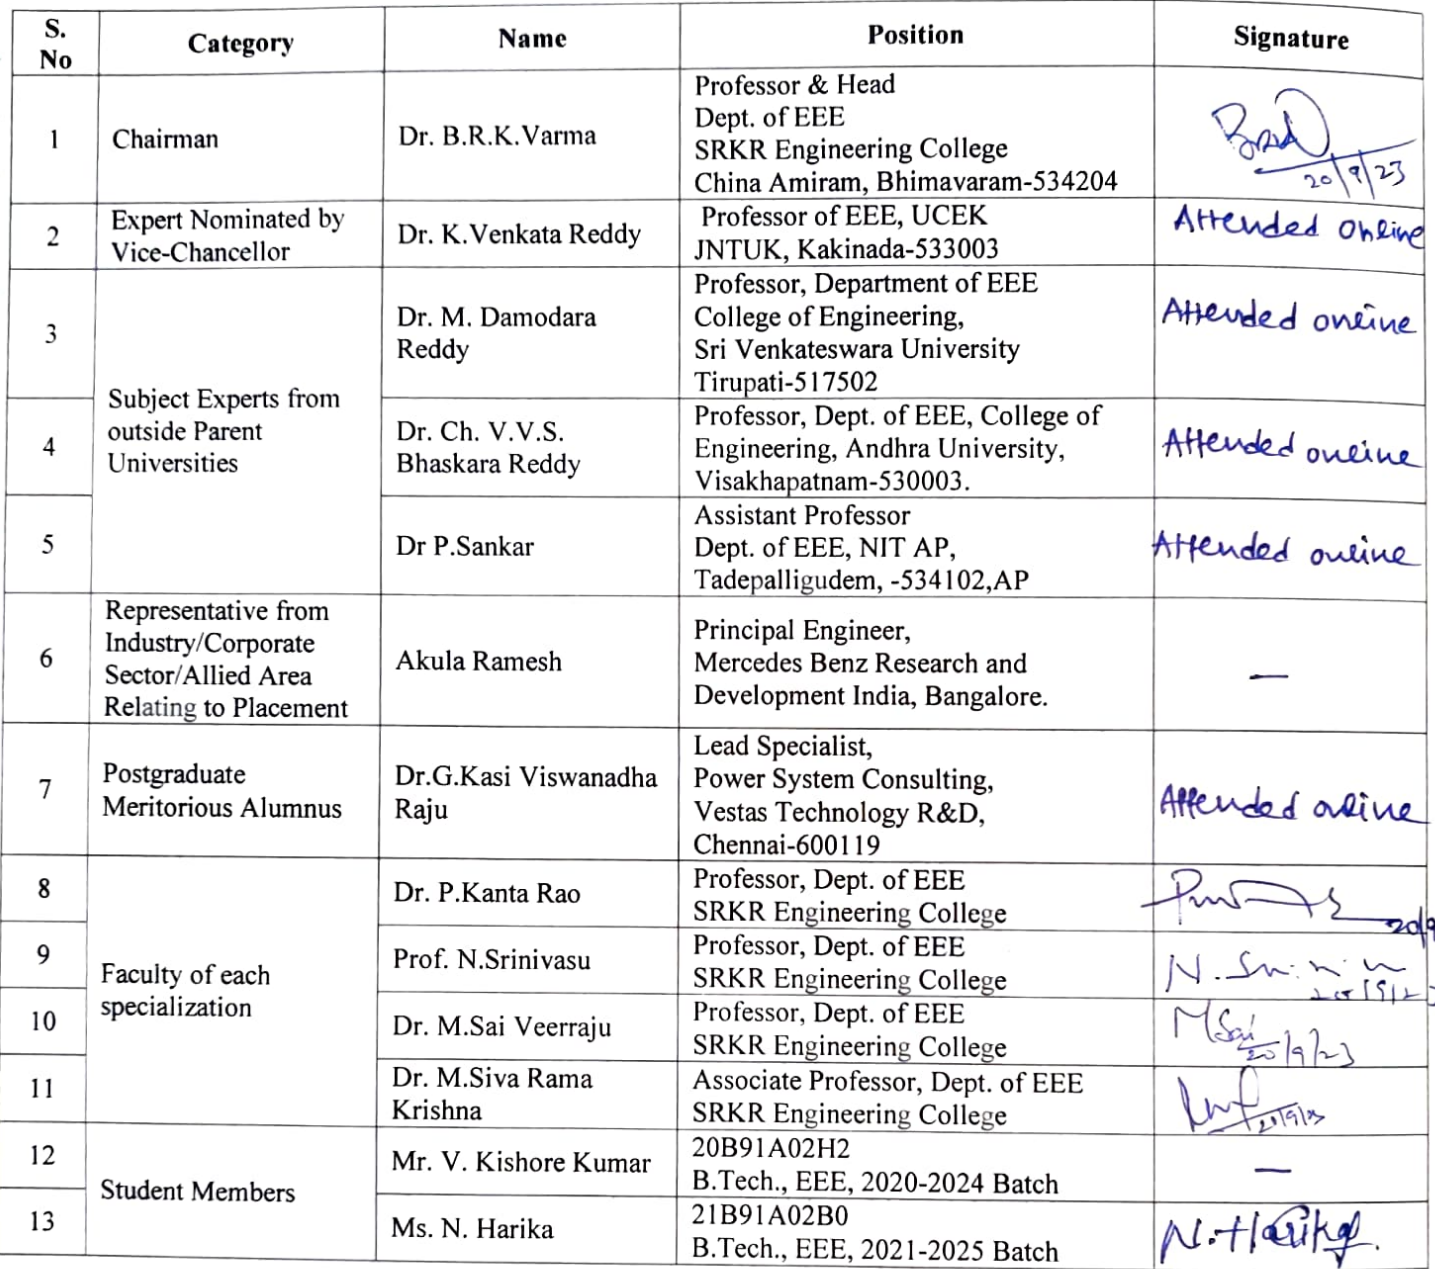 S. No Category Name Position Signature
1 Chairman Dr. B.R.K.Varma Professor & Head
Dept. of EEE
SRKR Engineering College
China Amiram, Bhimavaram-534204
20/9/23
2 Expert Nominated by
Vice-Chancellor
Dr. K.Venkata Reddy
Professor of EEE, UCEK
JNTUK, Kakinada-533003
Attended online
Subject Experts from
outside Parent
Universities
3 Dr. M. Damodara
Reddy
Professor, Department of EEE
College of Engineering,
Sri Venkateswara University
Tirupati-517502
Attended online
4 Dr. Ch. V.V.S.
Bhaskara Reddy
Professor, Dept. of EEE, College of
Engineering, Andhra University,
Visakhapatnam-530003.
Attended online
5 Dr P.Sankar
Assistant Professor
Dept. of EEE, NIT AP,
Tadepalligudem, -534102,AP
Attended online
6 Representative from
Industry/Corporate
Sector/Allied Area
Relating to Placement
Akula Ramesh
Principal Engineer,
Mercedes Benz Research and
Development India, Bangalore.
—
7 Postgraduate
Meritorious Alumnus
Dr.G.Kasi Viswanadha
Raju
Lead Specialist,
Power System Consulting,
Vestas Technology R&D,
Chennai-600119
Attended online
Faculty of each
specialization
8 Dr. P.Kanta Rao
Professor, Dept. of EEE
SRKR Engineering College
20/9
9 Prof. N.Srinivasu
Professor, Dept. of EEE
SRKR Engineering College
10 Dr. M.Sai Veerraju
Professor, Dept. of EEE
SRKR Engineering College
MSai
20/9/23
11 Dr. M.Siva Rama
Krishna
Associate Professor, Dept. of EEE
SRKR Engineering College
Student Members
12 Mr. V. Kishore Kumar
20B91A02H2
B.Tech., EEE, 2020-2024 Batch
—
13 Ms. N. Harika
21B91A02B0
B.Tech., EEE, 2021-2025 Batch
N. Harika